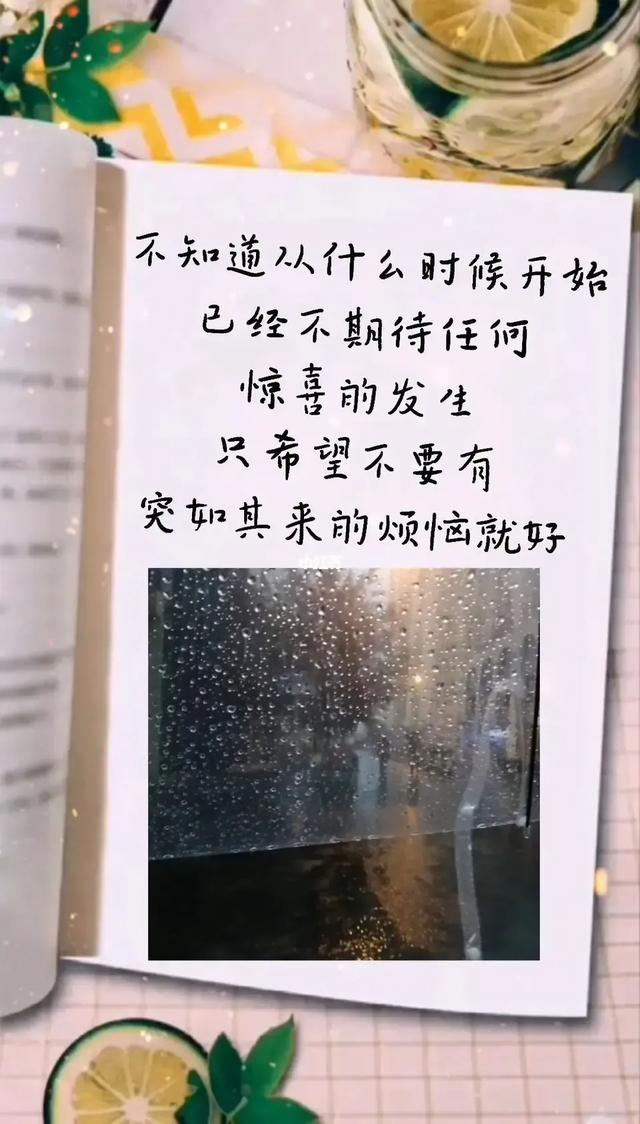 不知道从什么时候开始
已经不期待任何
惊喜的发生
只希望不要有
突如其来的烦恼就好